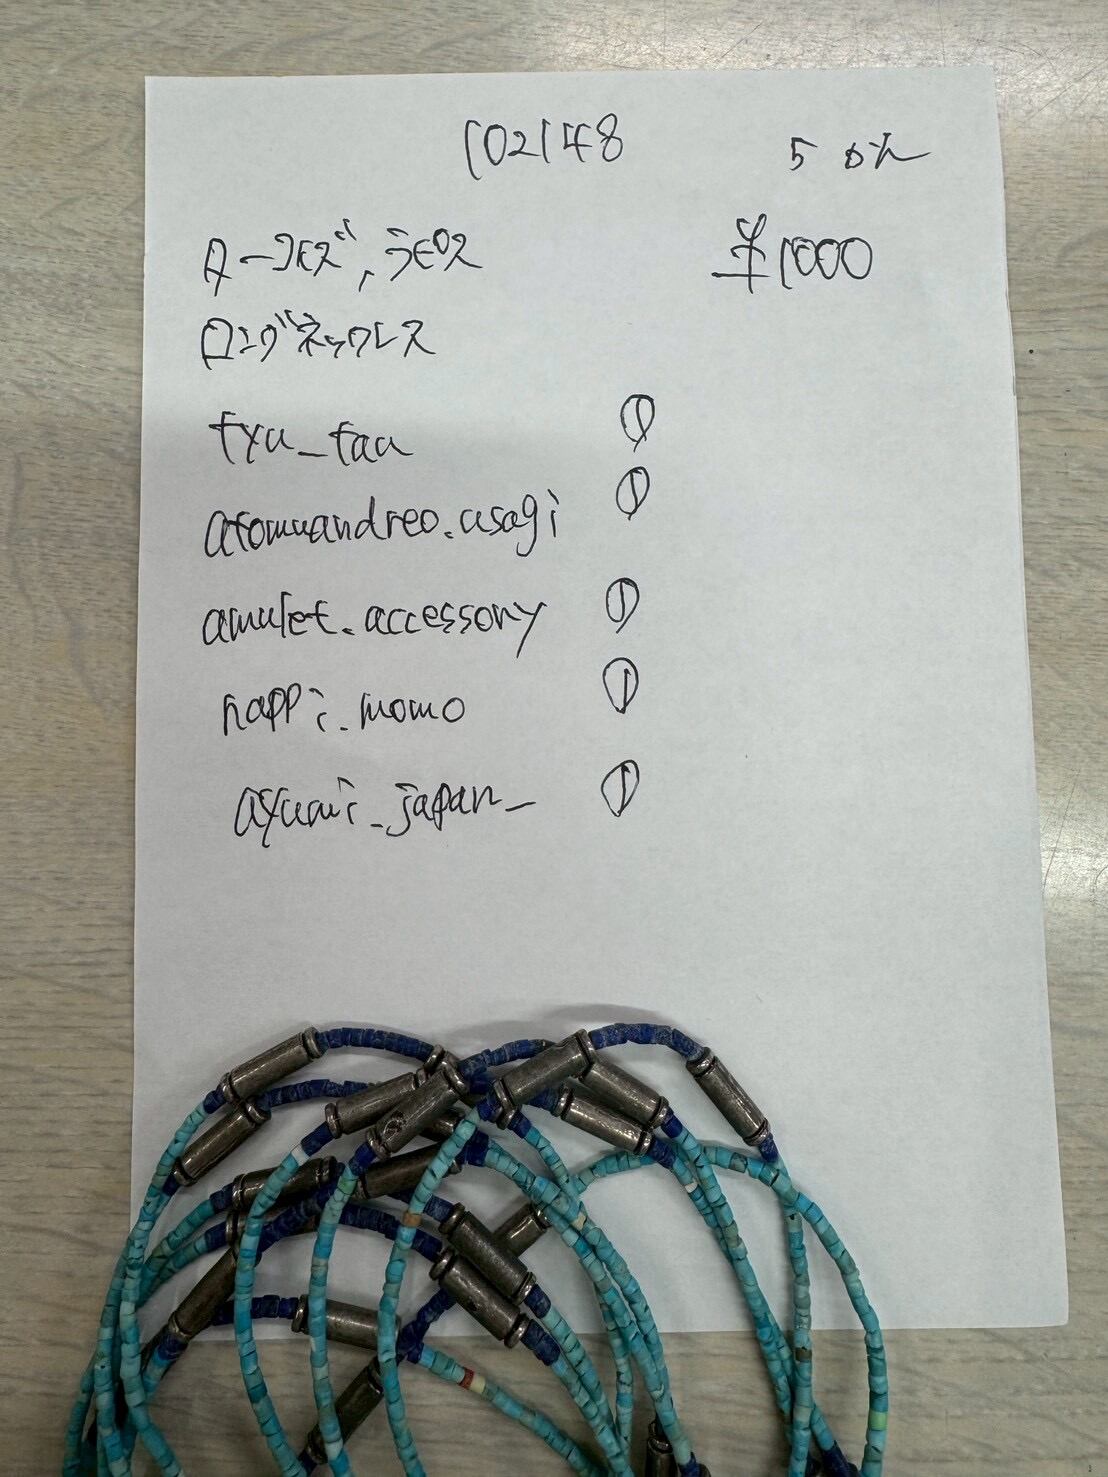 102148
50%
ターコイズ,ラピス
¥1000
ロングネックレス
fyu_fuu ①
atomuandreo.usagi ①
amulet.accessory ①
happi.momo ①
ayumi_japan_ ①